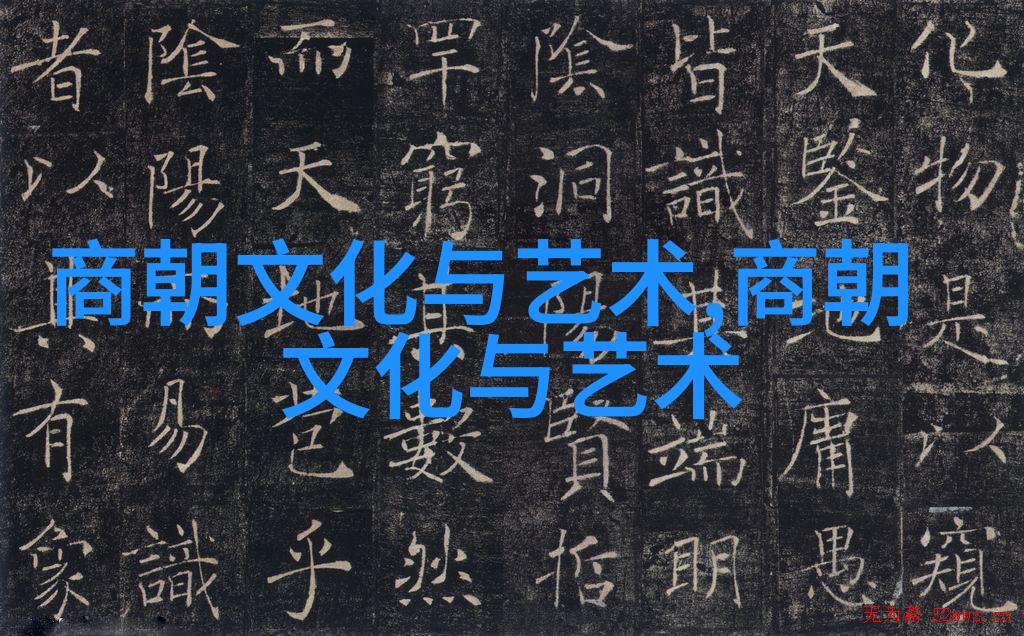 化物是以窺
天鑒地庸愚
皆識其端明
陰洞陽賢哲
罕窮其數然
而天地苞乎
陰陽而易識
者以其有象
商朝文化与艺术,商朝
文化与艺术
无为斋 52wwz.cn